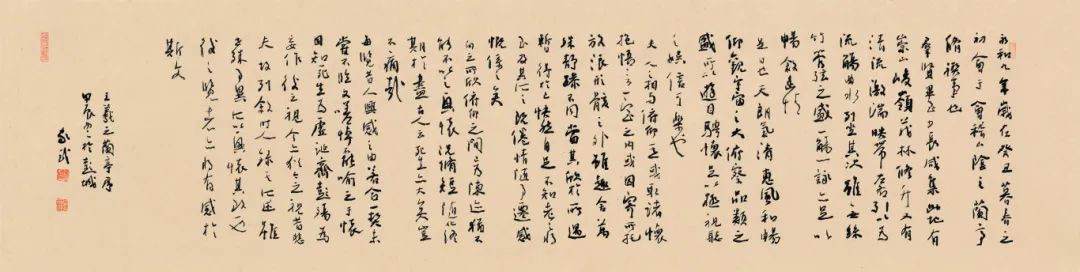 永和九年歲在癸丑暮春之
初會于會稽山陰之蘭亭
脩禊事也
群賢畢至少長咸集此地有
崇山峻嶺茂林脩竹又有
清流激湍映帶左右引以為
流觴曲水列坐其次雖無絲
竹管弦之盛一觴一詠亦足以
暢敘幽情
是日也天朗氣清惠風和暢
仰觀宇宙之大俯察品類之
盛所以遊目騁懷足以極視聽
之娛信可樂也
夫人之相與俯仰一世或取諸懷
抱悟言一室之內或因寄所托
放浪形骸之外雖趣舍萬
殊靜躁不同當其欣於所遇
暫得於己快然自足不知老之將
至及其所之既倦情隨事遷感
慨係之矣
向之所欣俯仰之間已為陳迹猶不
能不以之興懷況脩短隨化終
期於盡古人云死生亦大矣豈
不痛哉
每覽昔人興感之由若合一契未
嘗不臨文嗟悼不能喻之于懷
固知死生為虛誕齊彭殤為
妄作後之視今亦猶今之視昔悲
夫故列敘時人錄其所述雖
世殊事異所以興懷其致一也
後之覽者亦將有感於
斯文
王羲之蘭亭序
甲辰於彭城